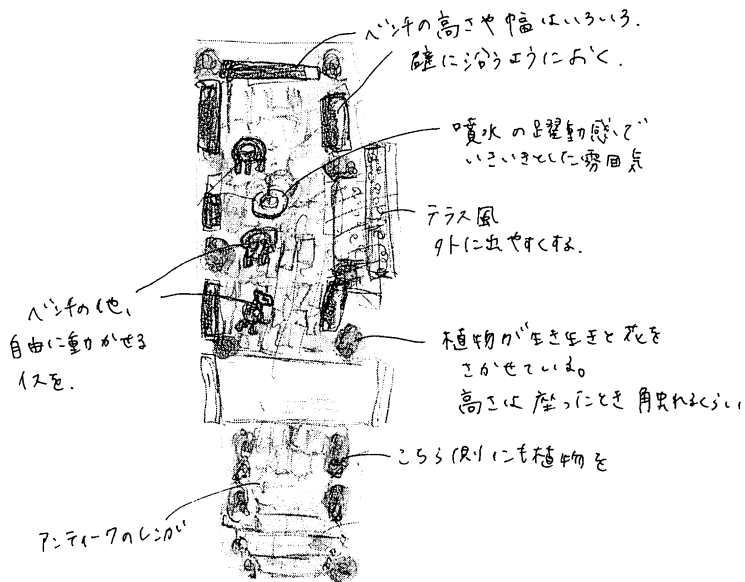 ベンチの高さや幅はいろいろ.
壁に沿うようにおく.
噴水の躍動感で
いきいきとした雰囲気
テラス風
外に出やすくする.
ベンチの他、
自由に動かせる
イスを.
植物が生き生きと花を
さかせている。
高さは座ったとき触れるくらい
こちら側にも植物を
アンティークのレンガ